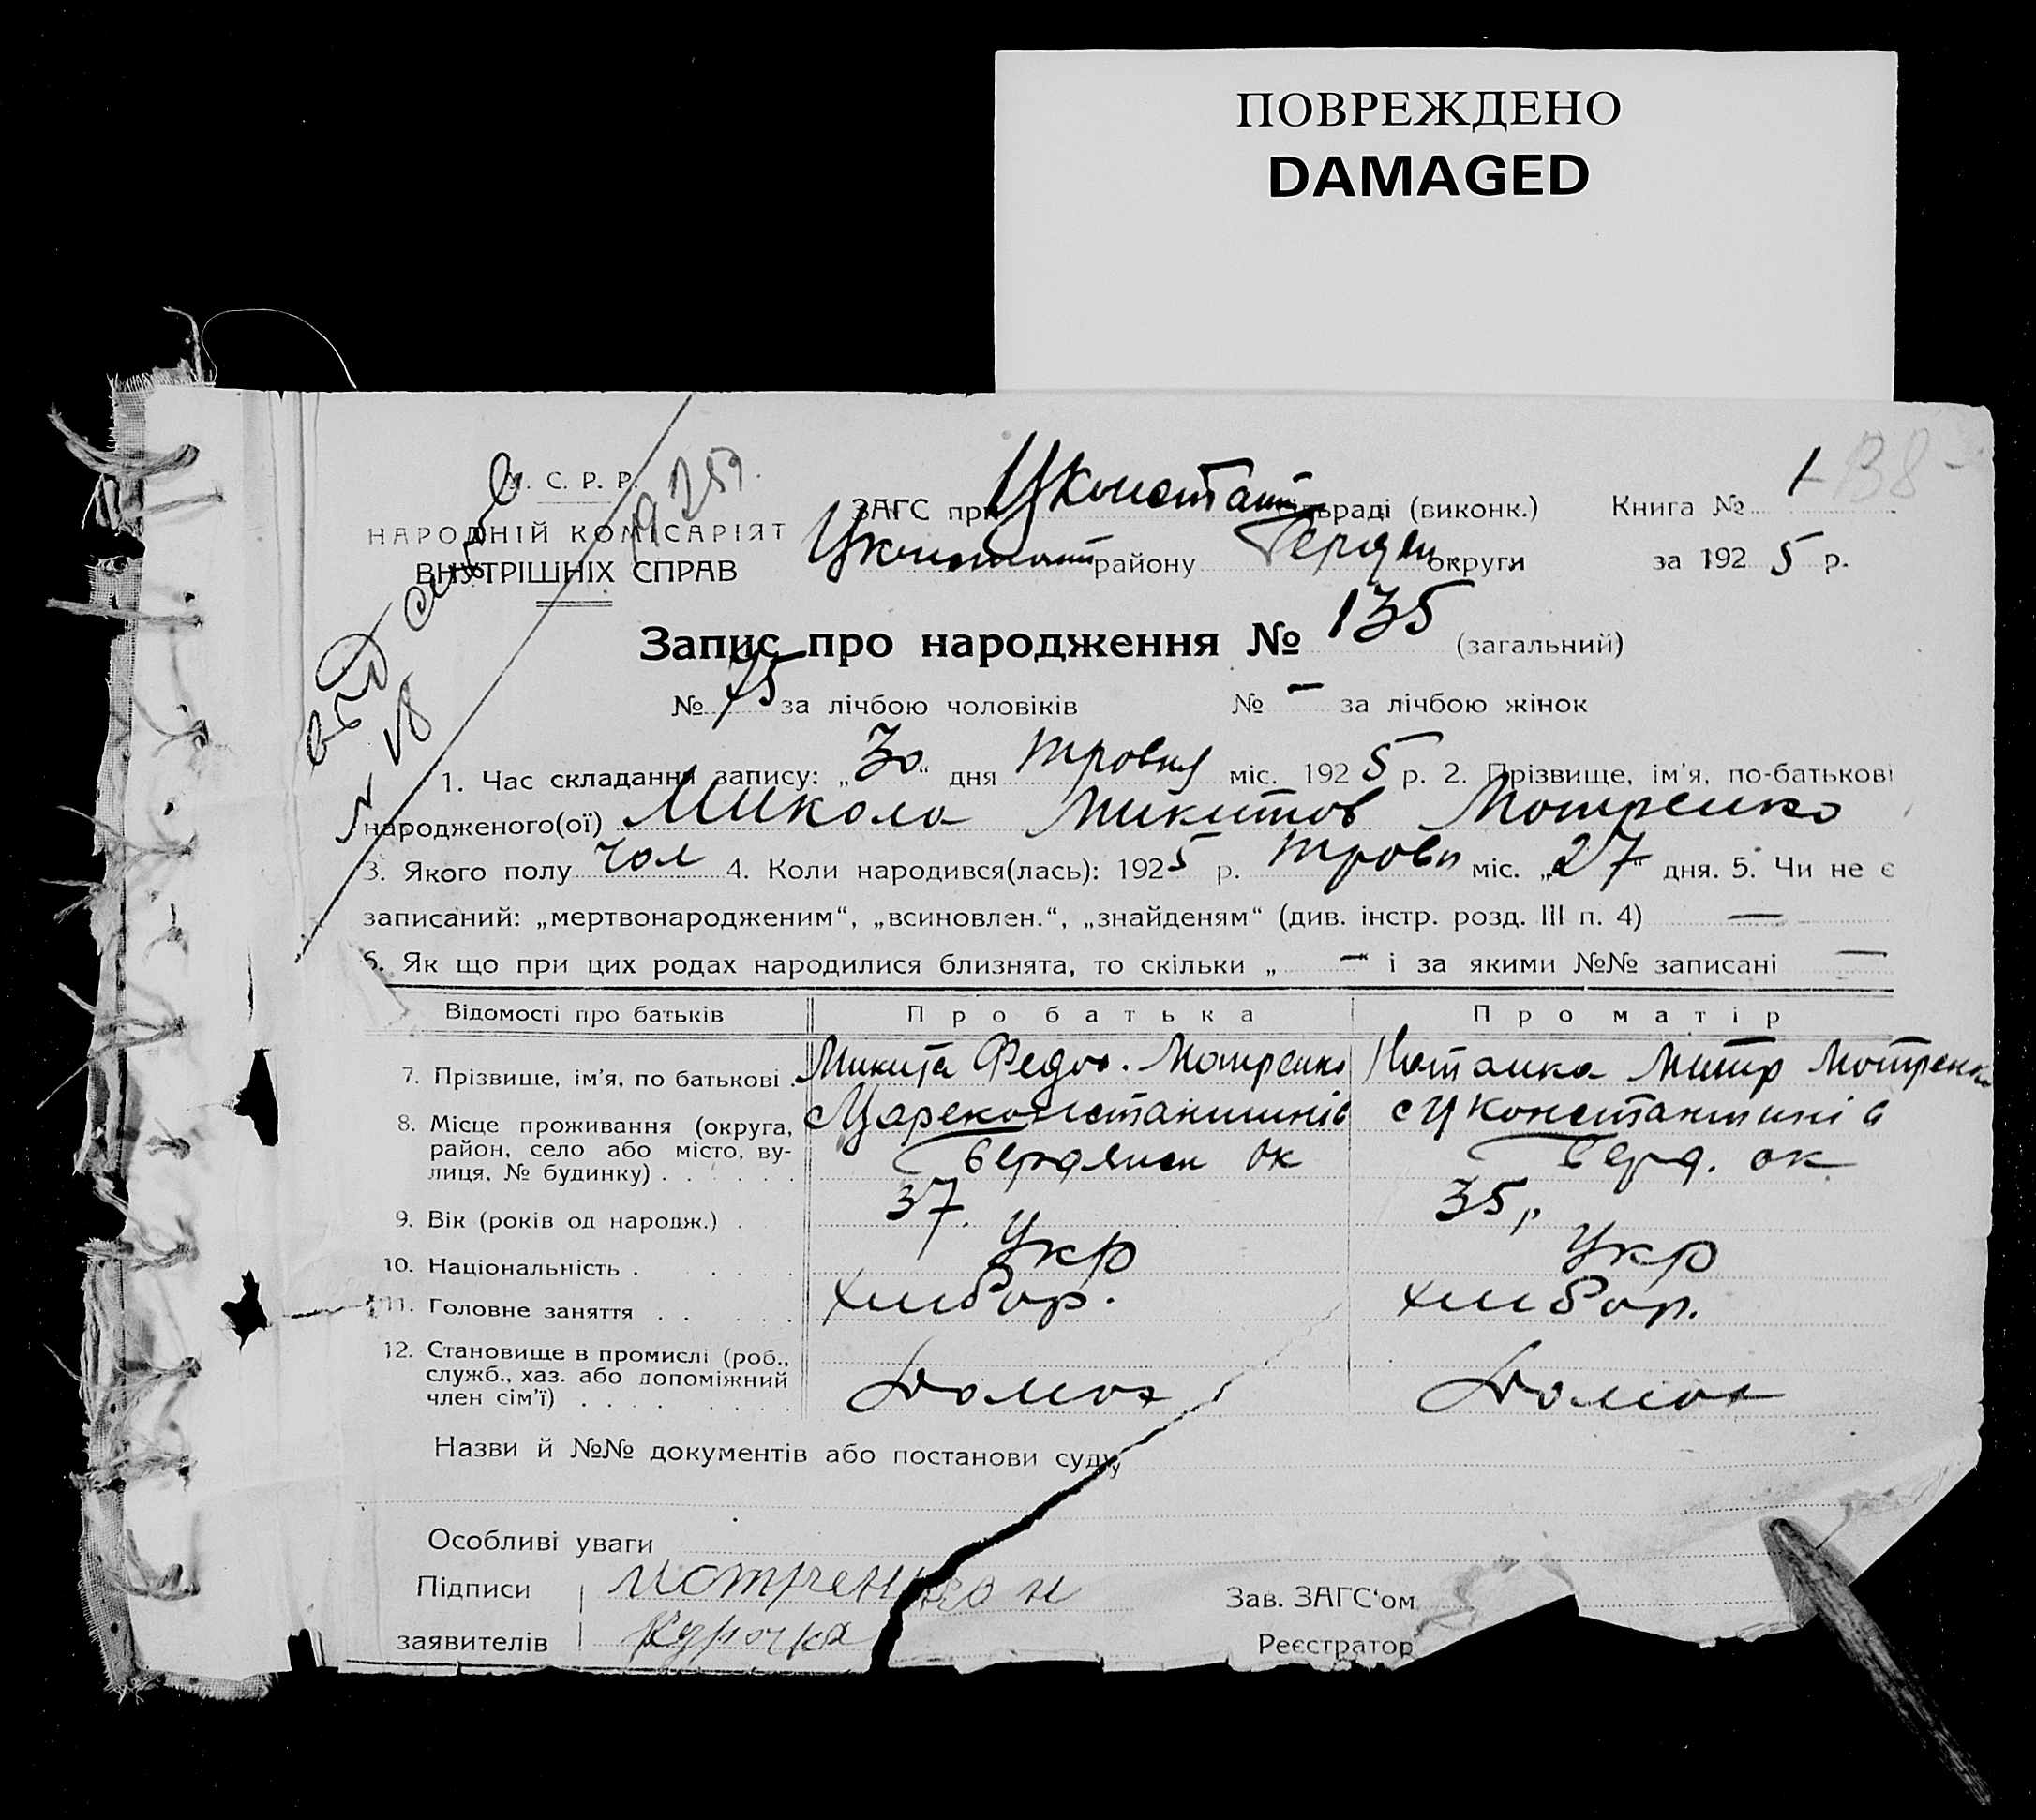 ПОВРЕЖДЕНО
DAMAGED
С. Р. Р.
НАРОДНІЙ КОМІСАРІЯТ
ВНУТРІШНІХ СПРАВ
ЗАГС при Цконстант сільраді (виконк.) Книга № 1
Цконстант району Бердян округи за 1925 р.
Запис про народження № 135 (загальний)
№ 75 за лічбою чоловіків № — за лічбою жінок
1. Час складання запису: „30“ дня травня міс. 1925 р. 2. Прізвище, ім'я, по-батькові
народженого(ої) Микола Микитов Мотренко
3. Якого полу чол 4. Коли народився(лась): 1925 р. травн міс. „27“ дня. 5. Чи не є
записаний: „мертвонародженим“, „всиновлен.“, „знайденям“ (див. інстр. розд. III п. 4) —
6. Як що при цих родах народилися близнята, то скільки „ —“ і за якими №№ записані —
Відомості про батьків Про батька Про матір
7. Прізвище, ім'я, по батькові . Микита Федос. Мотренко Митр Мотренко
8. Місце проживання (округа, район, село або місто, вулиця, № будинку) . . . . . . с Цареконстантинів Бердянськ ок с Цконстантинів Берд. ок
9. Вік (років од народж.) . 37. 35 р.
10. Національність . . . . . Укр Укр
11. Головне заняття . . . . . хлібор. хлібор.
12. Становище в промислі (роб., служб., хаз. або допоміжний член сім'ї) . . . . . . . .
Назви й №№ документів або постанови суду
Особливі уваги
Підписи Мотренко Н
заявителів Курочка
Зав. ЗАГС'ом
Реєстратор